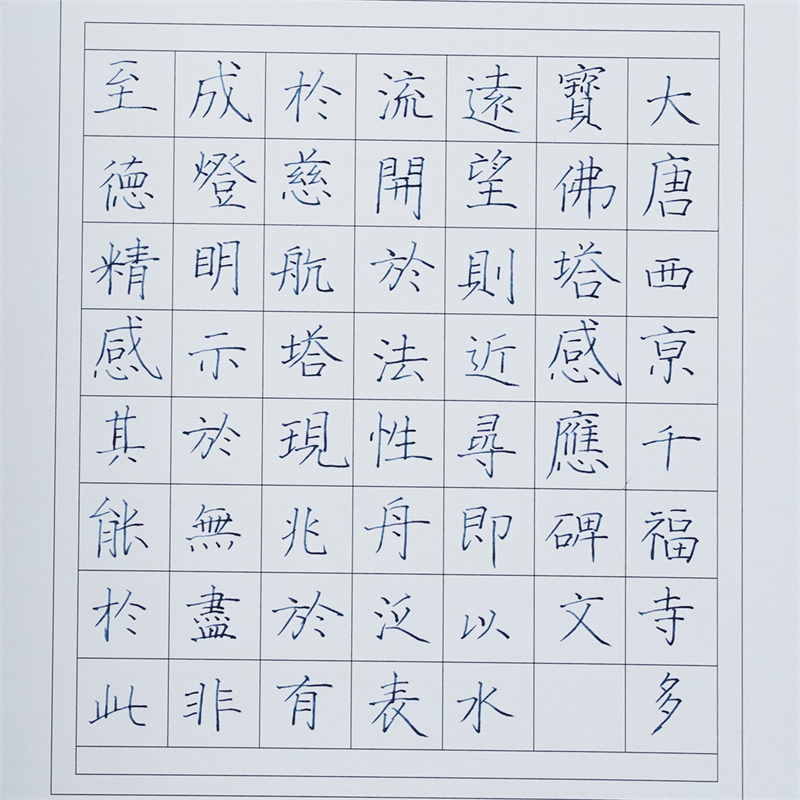 大唐西京千福寺多
寶佛塔感應碑文
遠望則近尋即以水
流開於法性舟泛表
於慈航塔現兆於有
成燈明示於無盡非
至德精感其能於此